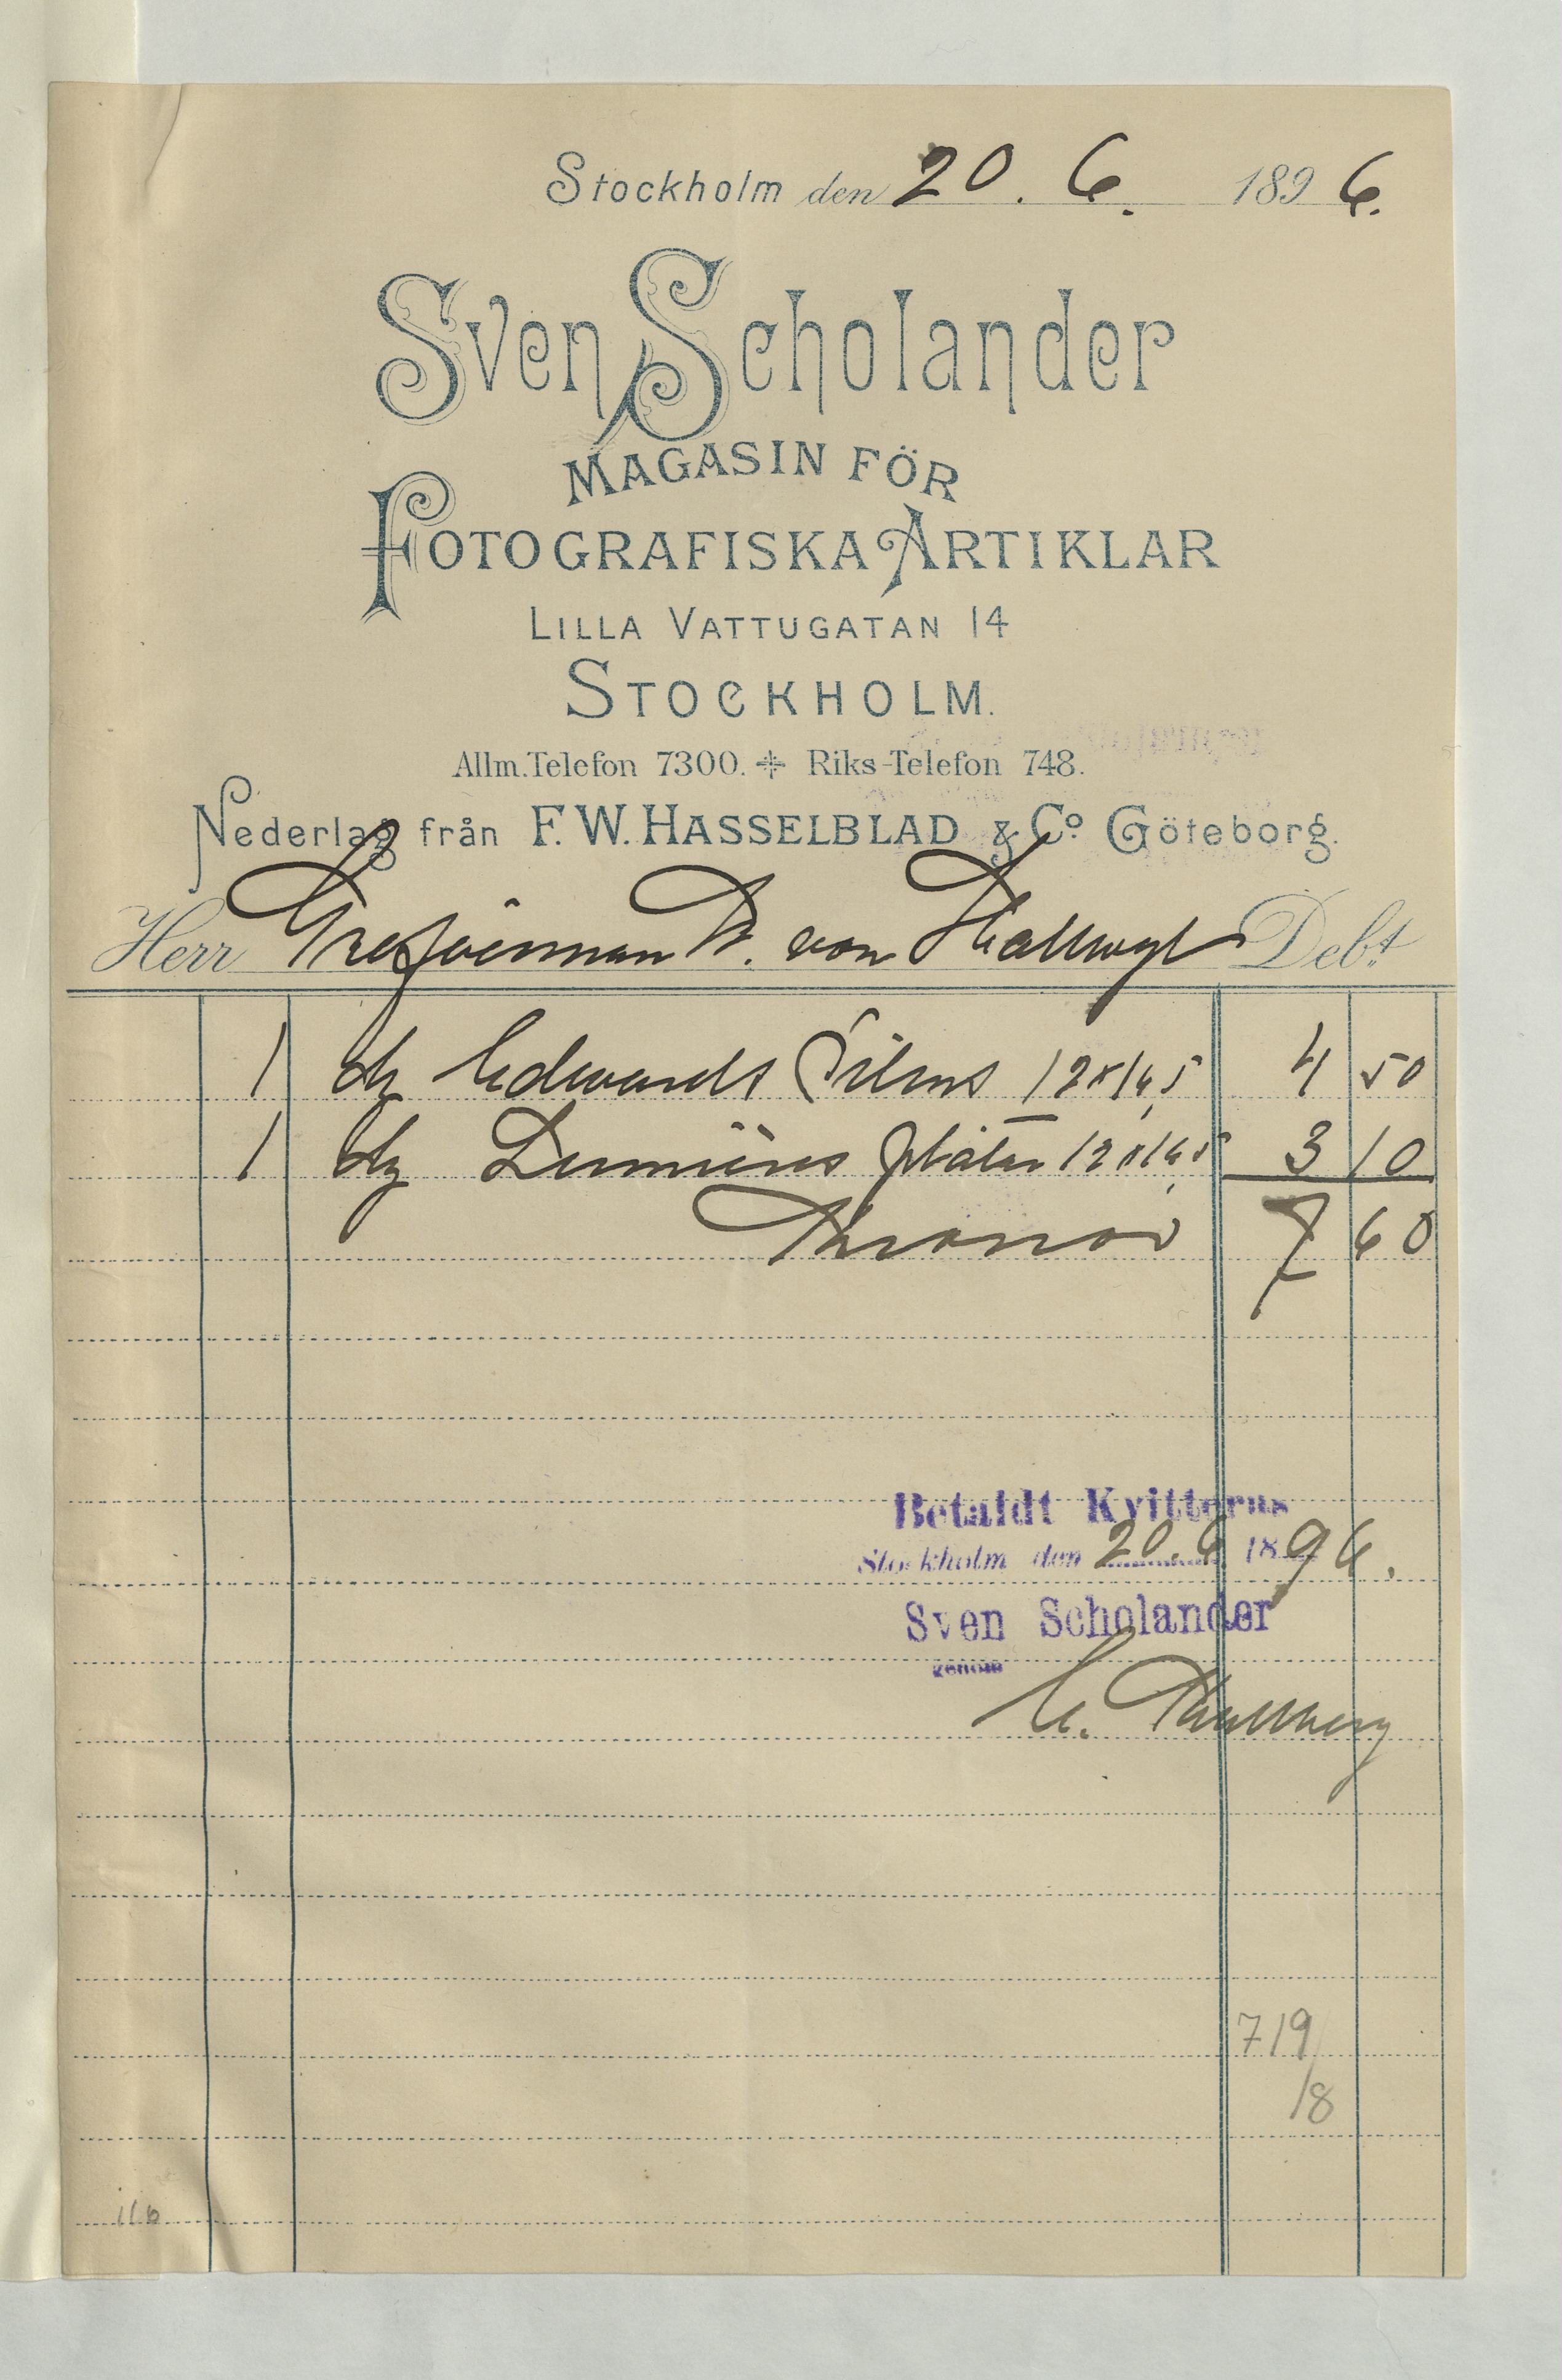 Stockholm den 20. 6. 1896.
Sven Scholander
MAGASIN FÖR
FOTOGRAFISKA ARTIKLAR
LILLA VATTUGATAN 14
STOCKHOLM.
Allm. Telefon 7300. Riks-Telefon 748.
Nederlag från F. W. HASSELBLAD & Co. Göteborg.
Herr W. von Hallwyl Debt.
1 dz Edwards Films 12x16,5 4 50
1 dz Lumières plåtar 12x16,5 3 10
Kronor 7 60
Betaldt Kvitteras
Stockholm den 20. 6. 1896.
Sven Scholander
genom
719
18